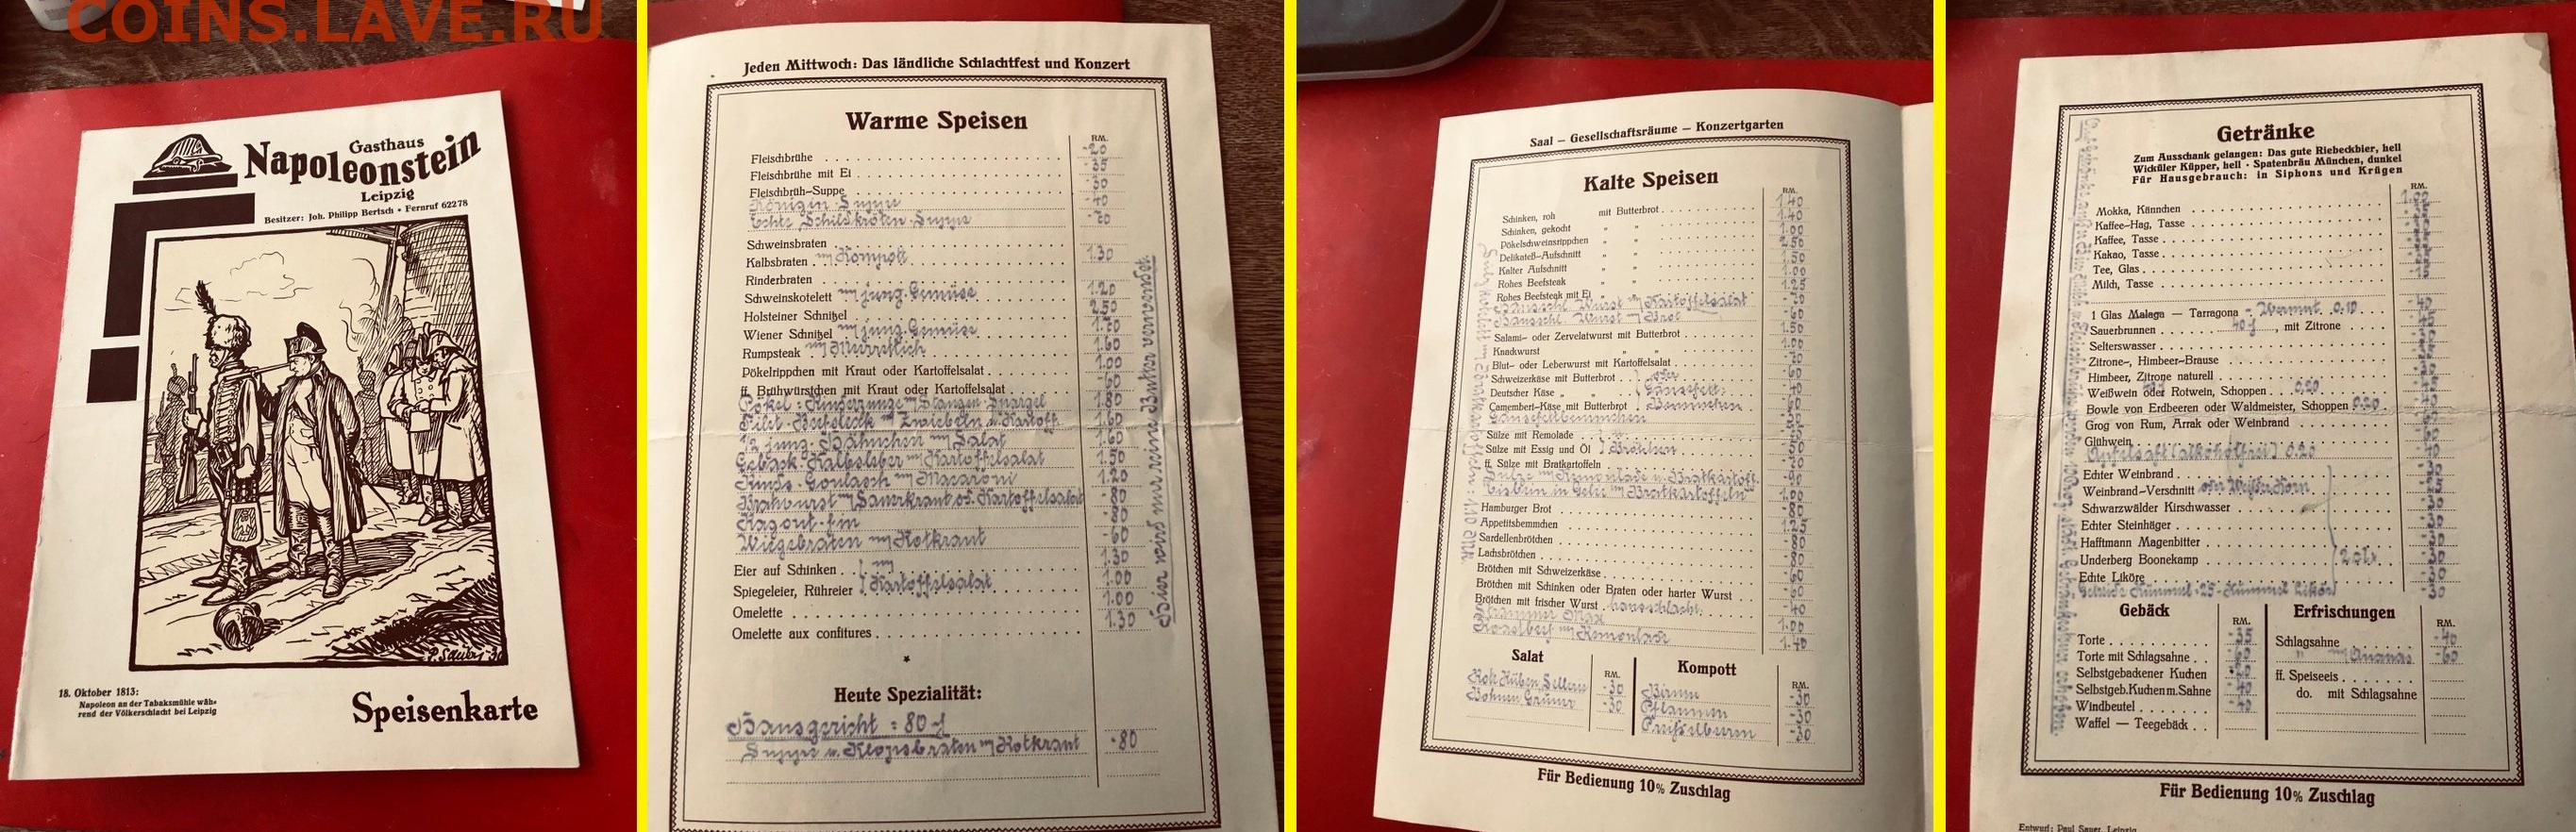 COINS.LAVE.RU
Gasthaus
Napoleonstein
Leipzig
Besitzer: Joh. Philipp Bertsch • Fernruf 62278
P. Sauer 30
18. Oktober 1813:
Napoleon an der Tabaksmühle wäh-
rend der Völkerschlacht bei Leipzig
Speisenkarte
Jeden Mittwoch: Das ländliche Schlachtfest und Konzert
Warme Speisen
RM.
Fleischbrühe -20
Fleischbrühe mit Ei -35
Fleischbrüh-Suppe -30
Königin-Suppe -40
Echte Schildkröten-Suppe -70
Schweinsbraten
Kalbsbraten m/Kompott 1.30
Rinderbraten
Schweinskotelett m/jung. Gemüse 1.20
Holsteiner Schnitzel 2.50
Wiener Schnitzel m/jung. Gemüse 1.70
Rumpsteak m/Meerrettich 1.60
Pökelrippchen mit Kraut oder Kartoffelsalat 1.00
ff. Brühwürstchen mit Kraut oder Kartoffelsalat -60
Pökel-Rinderzunge m/Stangen-Spargel 1.80
Filet-Beefsteak m/Zwiebeln u. Kartoff. 1.60
1/2 jung. Hähnchen m/Salat 1.60
Geback. Kalbsleber m/Kartoffelsalat 1.50
Rinds-Goulasch m/Macaroni 1.20
Bratwurst m/Sauerkraut od. Kartoffelsalat -80
Ragout-fin -80
Wiegebraten m/Rotkraut -60
Eier auf Schinken 1.30
Spiegeleier, Rühreier m/Kartoffelsalat 1.00
Omelette 1.00
Omelette aux confitures 1.30
Hier wird nur reine Butter verwendet.
Heute Spezialität:
Hausgericht: 80
Suppe u. Klopsbraten m/Rotkraut -80
Saal – Gesellschaftsräume – Konzertgarten
Kalte Speisen
RM.
Schinken, roh mit Butterbrot 1.40
Schinken, gekocht " " 1.40
Pökelschweinsrippchen " " 1.00
Delikateß-Aufschnitt " " 2.50
Kalter Aufschnitt " " 1.50
Rohes Beefsteak " " 1.00
Rohes Beefsteak mit Ei " " 1.25
Hausschl. Wurst m/Kartoffelsalat
Hausschl. Wurst m/Brot
Salami- oder Zervelatwurst mit Butterbrot
Knackwurst " "
Blut- oder Leberwurst mit Kartoffelsalat
Schweizerkäse mit Butterbrot
Deutscher Käse " "
Camembert-Käse mit Butterbrot
Sülze mit Remolade
Sülze mit Essig und Öl Brötchen
ff. Sülze mit Bratkartoffeln
Sülze m/Remolade u. Bratkartoff.
Eisbein in Gelee m/Bratkartoffeln
Hamburger Brot
Appetitsbemmchen
Sardellenbrötchen
Lachsbrötchen
Brötchen mit Schweizerkäse
Brötchen mit Schinken oder Braten oder harter Wurst
Brötchen mit frischer Wurst hausschlacht. -40
Strammer Max 1.00
Roastbeef m/Remonlade 1.40
Salat
RM.
Rote Rüben, Sellerie -30
Bohnen, Grüner -30
Kompott
RM.
Birnen -30
Pflaumen -30
Preißelbeern -30
Für Bedienung 10% Zuschlag
Getränke
Zum Ausschank gelangen: Das gute Riebeckbier, hell
Wicküler Küpper, hell • Spatenbräu München, dunkel
Für Hausgebrauch: in Siphons und Krügen
RM.
Mokka, Kännchen
Kaffee-Hag, Tasse
Kaffee, Tasse
Kakao, Tasse
Tee, Glas
Milch, Tasse
1 Glas Malaga — Tarragona - Wermut 0.40
Sauerbrunnen , mit Zitrone
Selterswasser
Zitrone-, Himbeer-Brause
Himbeer, Zitrone naturell
Weißwein oder Rotwein, Schoppen
Bowle von Erdbeeren oder Waldmeister, Schoppen
Grog von Rum, Arrak oder Weinbrand
Glühwein
Apfelsaft (alkoholfrei) 0.20
Echter Weinbrand
Weinbrand-Verschnitt
Schwarzwälder Kirschwasser
Echter Steinhäger
Hafftmann Magenbitter
Underberg Boonekamp
Echte Liköre
Gebäck
RM.
Torte -35
Torte mit Schlagsahne
Selbstgebackener Kuchen
Selbstgeb. Kuchen m. Sahne -40
Windbeutel -40
Waffel — Teegebäck
Erfrischungen
RM.
Schlagsahne -40
" m/Ananas -60
ff. Speiseeis
do. mit Schlagsahne
Für Bedienung 10% Zuschlag
Entwurf: Paul Sauer, Leipzig